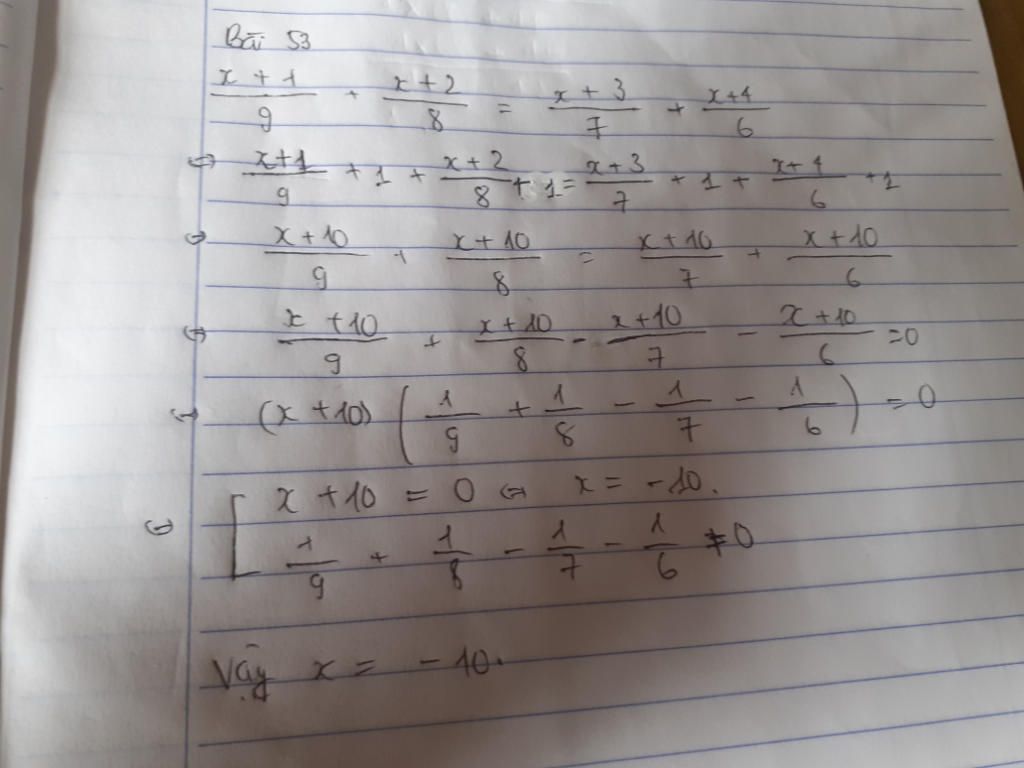 Bài 53
x+1/9 + x+2/8 = x+3/7 + x+4/6
⇔ x+1/9 + 1 + x+2/8 + 1 = x+3/7 + 1 + x+4/6 + 1
⇔ x+10/9 + x+10/8 = x+10/7 + x+10/6
⇔ x+10/9 + x+10/8 - x+10/7 - x+10/6 = 0
⇔ (x+10) (1/9 + 1/8 - 1/7 - 1/6) = 0
⇔ [ x+10 = 0 ⇔ x = -10.
1/9 + 1/8 - 1/7 - 1/6 ≠ 0
Vậy x = -10.